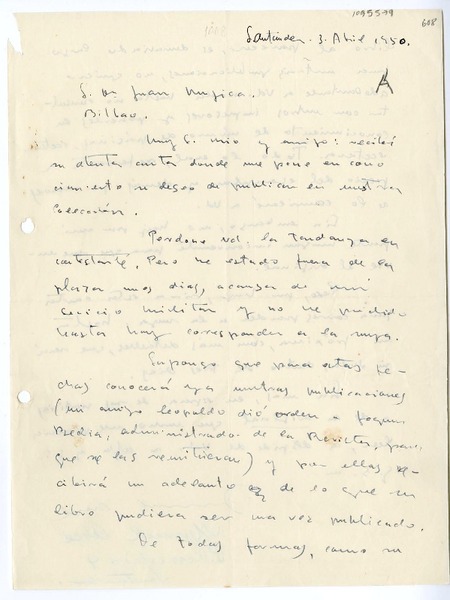 1095579
608
Santander. 3. Abril 1950.
A
S. Dn Juan Mugica.
Bilbao.
Muy S. mio y amigo: recibí
su atenta carta donde me pone en cono
cimiento su deseo de publicar en nuestra
Colección.
Perdone vd. la tardanza en
contestarle. Pero he estado fuera de la
plaza unos días, a causa de mi
servicio militar y no he podido
hasta hoy corresponder a la suya.
Supongo que para estas fe
chas conocerá ya nuestras publicaciones
(mi amigo Leopoldo dió orden a Joaquin
Bedia, administrador de la Revista, para
que se las remitieran) y por ellas re
cibirá un adelanto de lo que su
libro pudiera ser una vez publicado.
De todas formas, como su